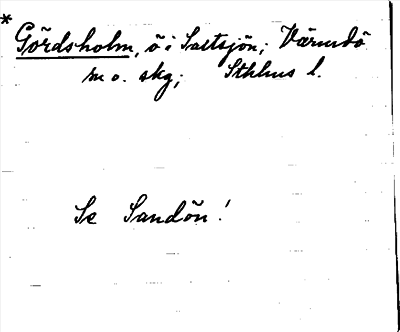 * Gördsholm, ö i Saltsjön; Värmdö
m o. skg; Sthlms l.
Se Sandön!